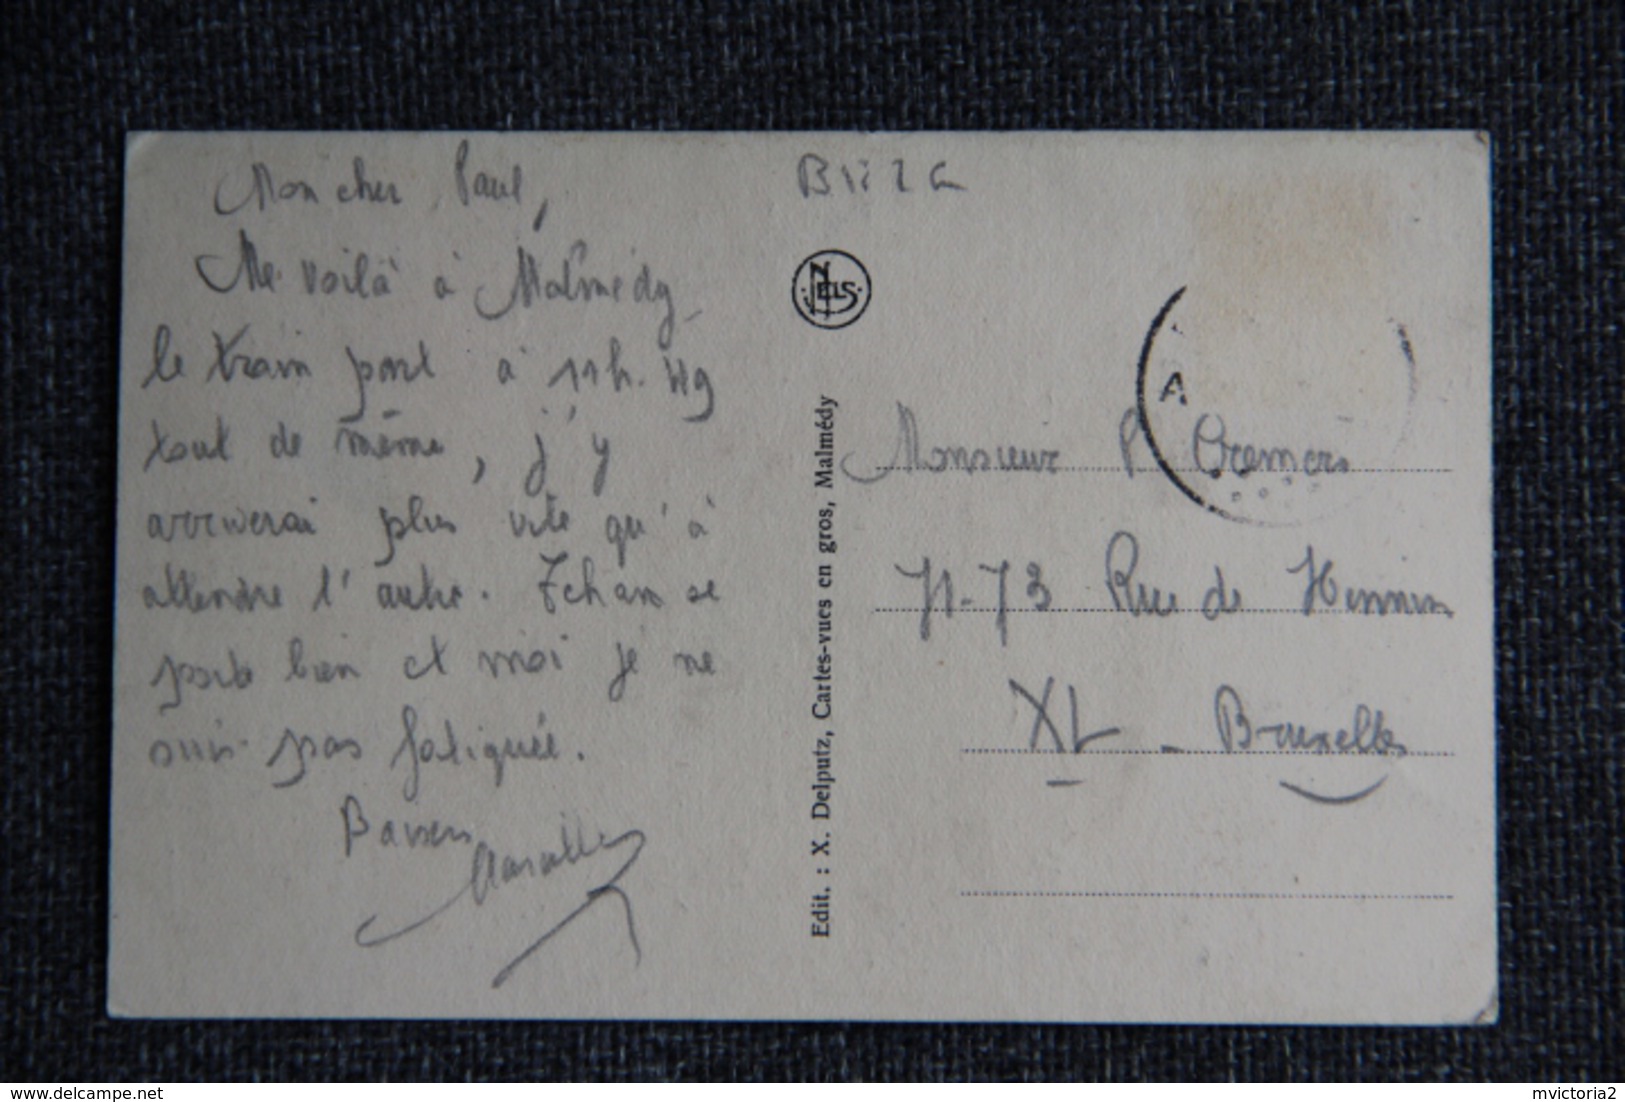 Mon cher Paul,
Me voilà à Malmédy
le train part à 11h. 49
tout de même, j'y
arriverai plus vite qu'à
attendre l'autre. Tchan se
porte bien et moi je ne
suis pas fatiguée.
Baisers
NELS
Edit. : X. Delputz, Cartes-vues en gros, Malmédy
A
Monsieur P Cremers
71-73 Rue de Hennin
XL - Bruxelles
delcampe.net
mvictoria2